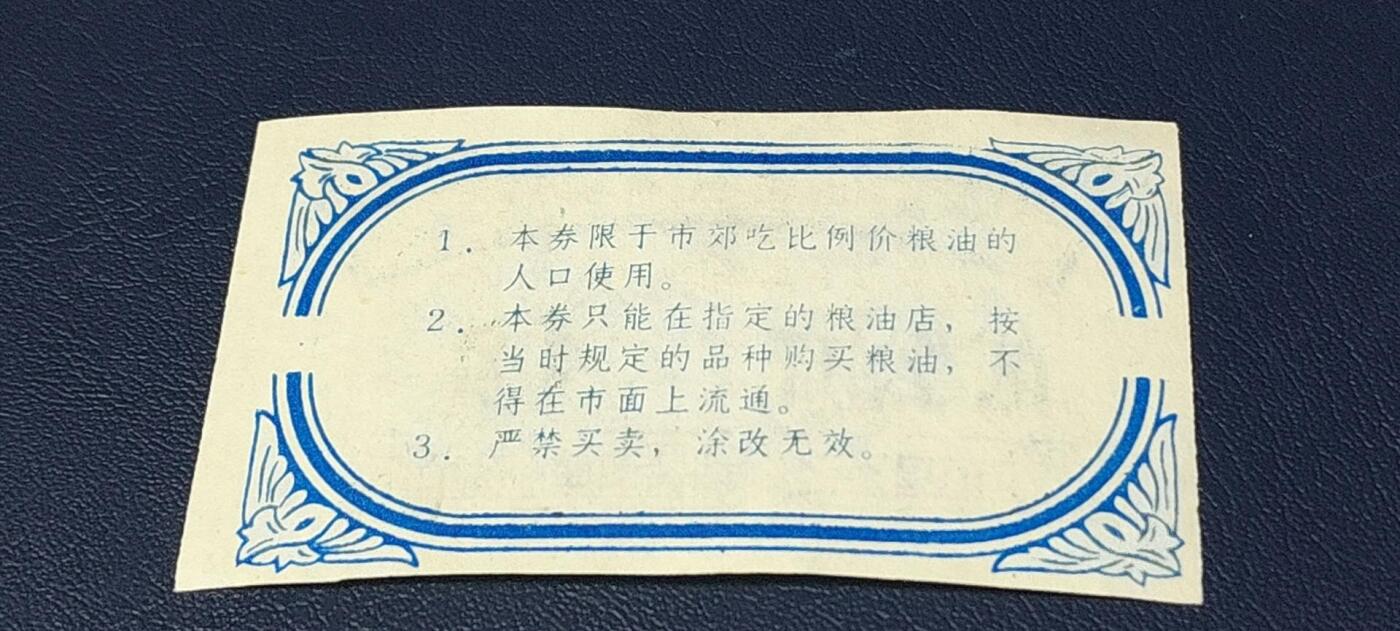 1. 本券限于市郊吃比例价粮油的
人口使用。
2. 本券只能在指定的粮油店，按
当时规定的品种购买粮油，不
得在市面上流通。
3. 严禁买卖，涂改无效。